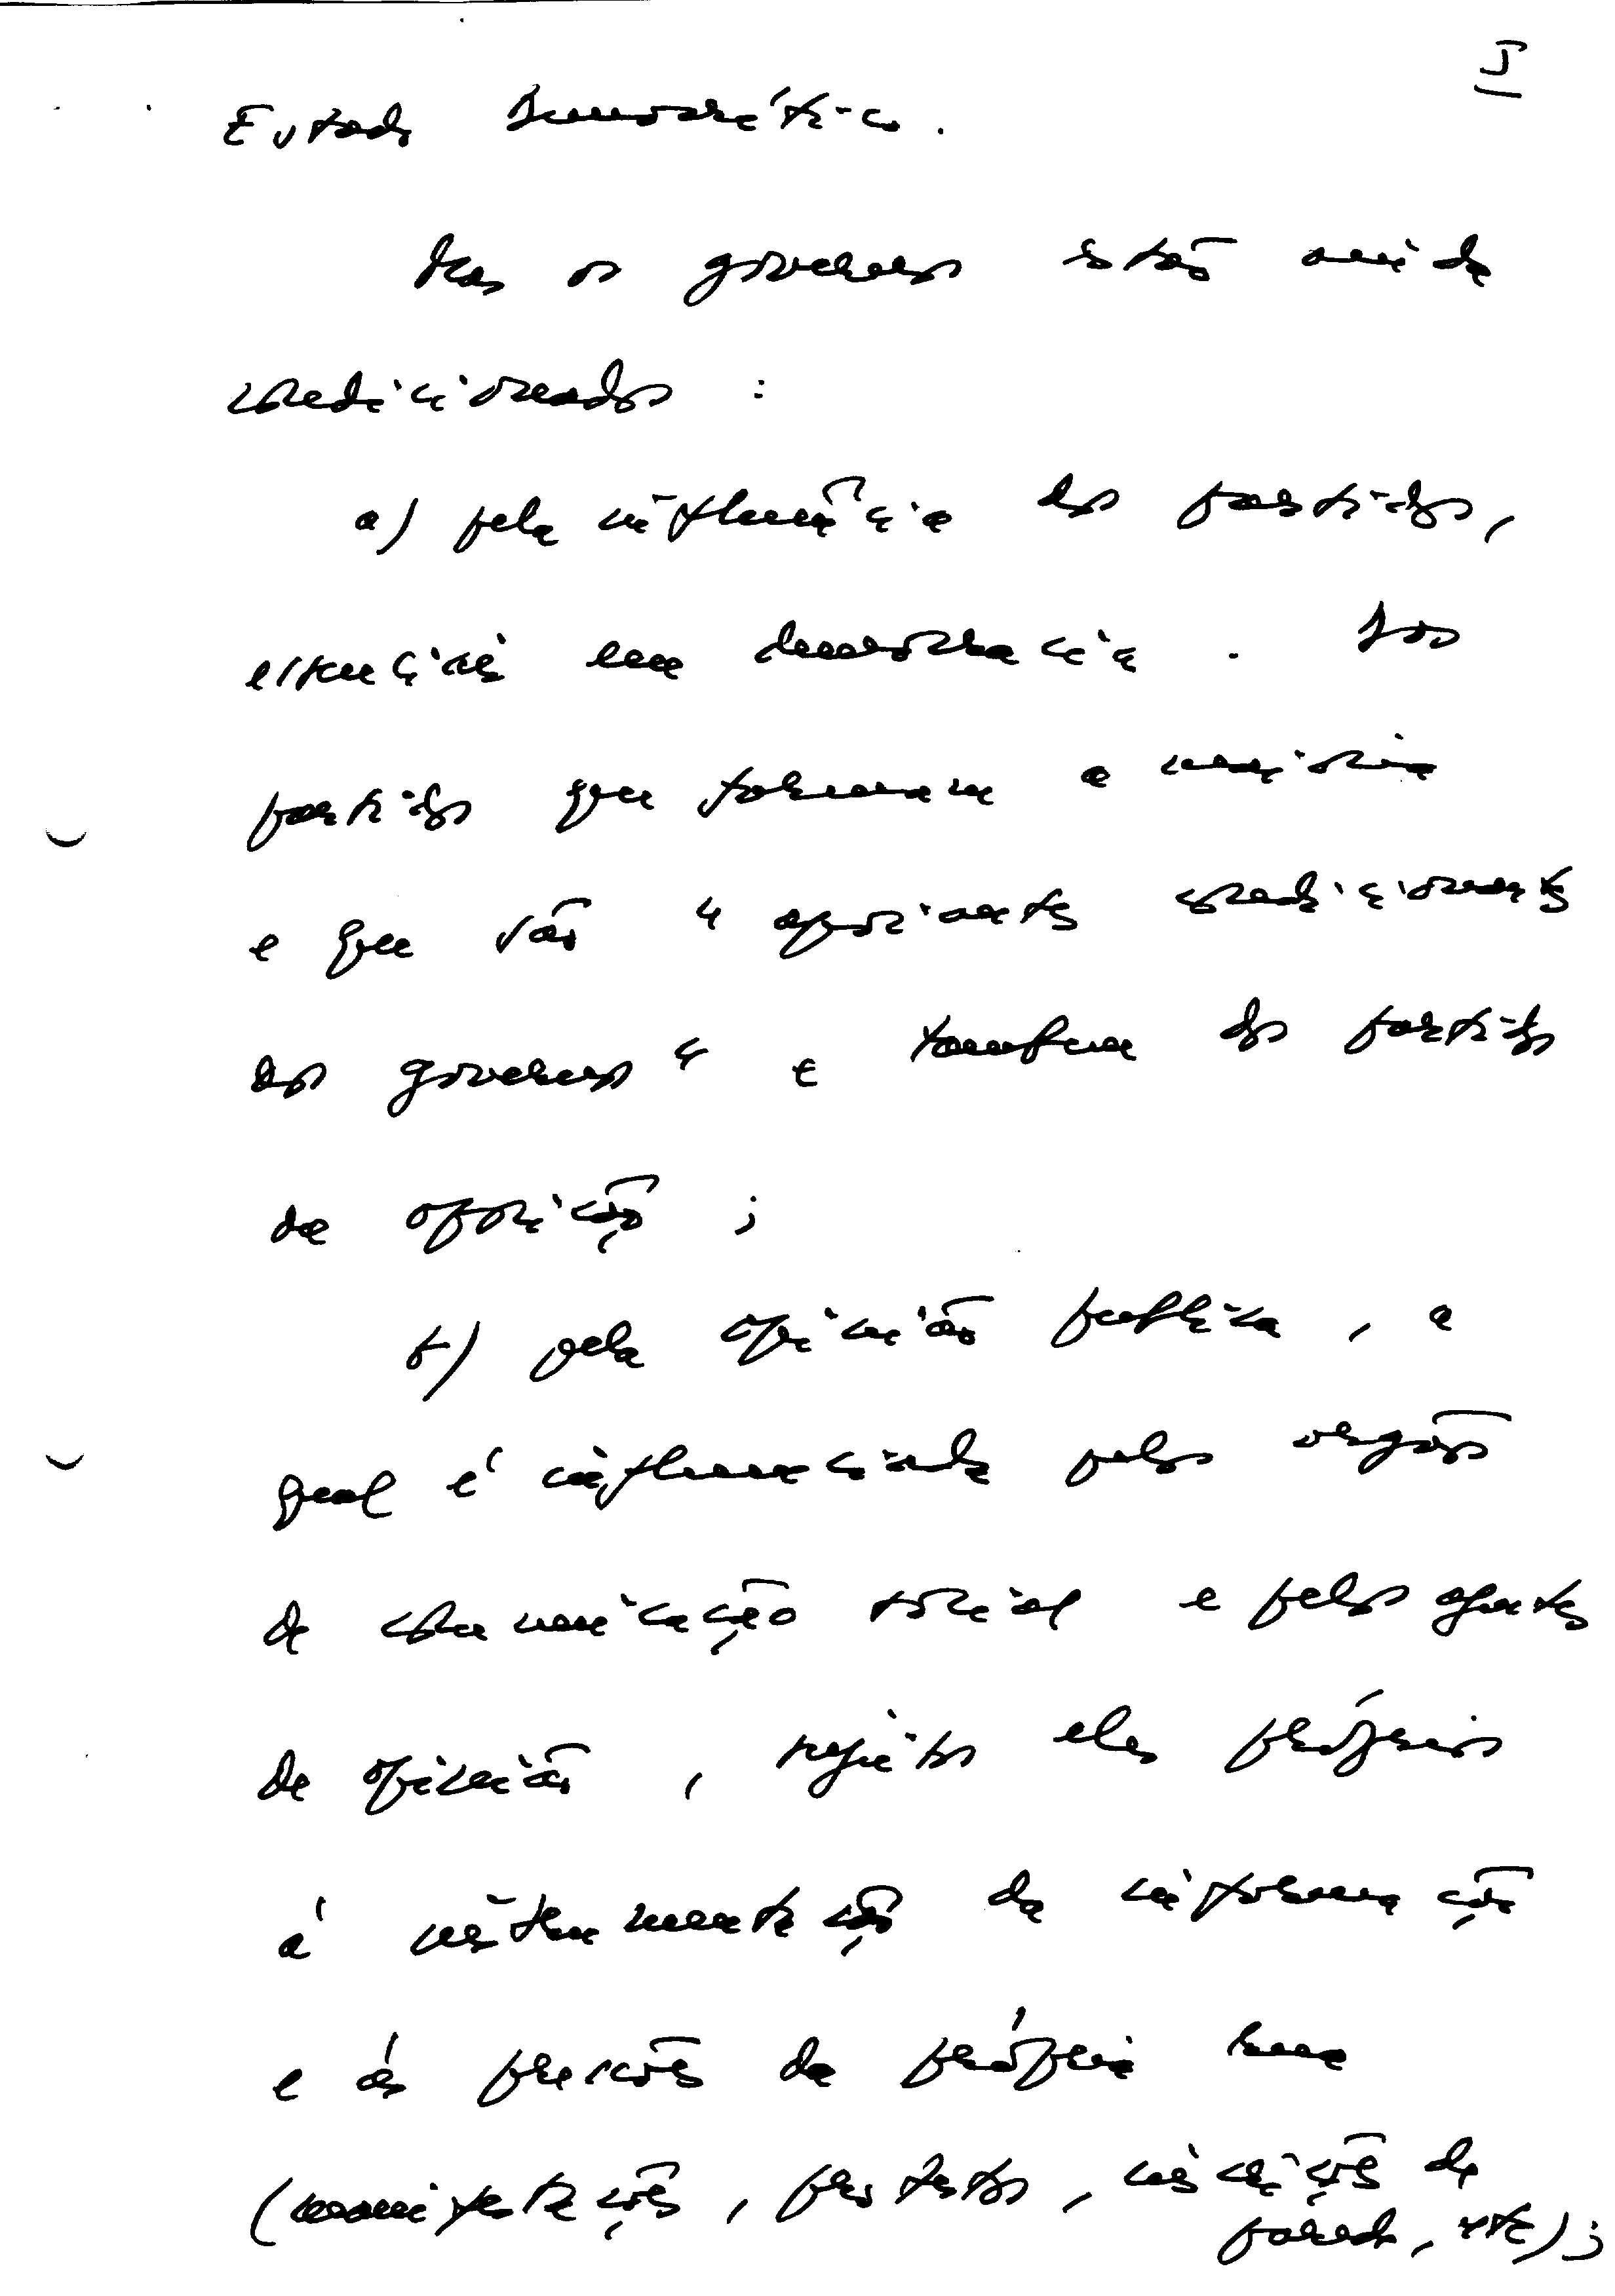 I
Estado Democrático.
Mas os governos estão ainda
condicionados :
a) pela influência dos partidos,
essenciais em democracia . Dos
partidos que formam a maioria
e que são " apoiantes condicionants
dos governos " e tambem dos partidos
da oposição ;
b) pela opinião publica , a
qual é influenciada pelos orgãos
de comunicação social e pelos agentes
de opinião , sujeitos eles próprios
á instrumentação da informação
e ás pressões da própria rua
(manifestações , protestos , inscrições de
parede, etc) ;